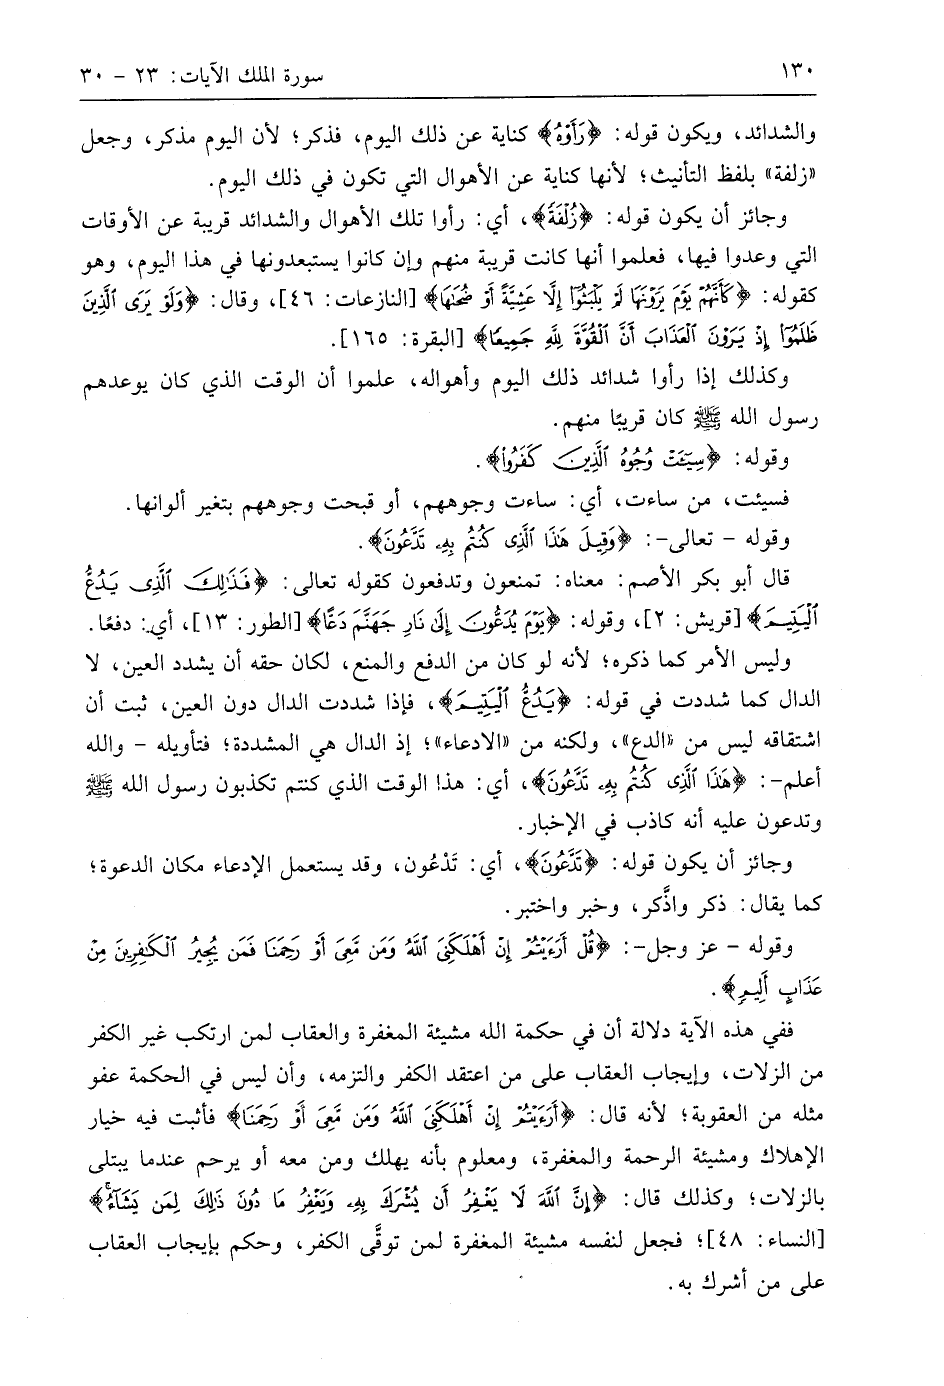 ١٣٠
سورة الملك الآيات: ٢٣ - ٣٠
والشدائد، ويكون قوله: ﴿رَأَوْهُ﴾ كناية عن ذلك اليوم، فذكر؛ لأن اليوم مذكر، وجعل
«زلفة» بلفظ التأنيث؛ لأنها كناية عن الأهوال التي تكون في ذلك اليوم.
وجائز أن يكون قوله: ﴿زُلْفَةً﴾، أي: رأوا تلك الأهوال والشدائد قريبة عن الأوقات
التي وعدوا فيها، فعلموا أنها كانت قريبة منهم وإن كانوا يستبعدونها في هذا اليوم، وهو
كقوله: ﴿كَأَنَّهُمْ يَوْمَ يَرَوْنَهَا لَمْ يَلْبَثُوٓا إِلَّا عَشِيَّةً أَوْ ضُحَىٰهَا﴾ [النازعات: ٤٦]، وقال: ﴿وَلَوْ يَرَى ٱلَّذِينَ
ظَلَمُوٓا إِذْ يَرَوْنَ ٱلْعَذَابَ أَنَّ ٱلْقُوَّةَ لِلَّهِ جَمِيعًا﴾ [البقرة: ١٦٥].
وكذلك إذا رأوا شدائد ذلك اليوم وأهواله، علموا أن الوقت الذي كان يوعدهم
رسول الله ﷺ كان قريبًا منهم.
وقوله: ﴿سِيٓـَٔتْ وُجُوهُ ٱلَّذِينَ كَفَرُوا﴾.
فسيئت، من ساءت، أي: ساءت وجوههم، أو قبحت وجوههم بتغير ألوانها.
وقوله - تعالى-: ﴿وَقِيلَ هَٰذَا ٱلَّذِى كُنتُم بِهِۦ تَدَّعُونَ﴾.
قال أبو بكر الأصم: معناه: تمنعون وتدفعون كقوله تعالى: ﴿فَذَٰلِكَ ٱلَّذِى يَدُعُّ
ٱلْيَتِيمَ﴾ [قريش: ٢]، وقوله: ﴿يَوْمَ يُدَعُّونَ إِلَىٰ نَارِ جَهَنَّمَ دَعًّا﴾ [الطور: ١٣]، أي: دفعًا.
وليس الأمر كما ذكره؛ لأنه لو كان من الدفع والمنع، لكان حقه أن يشدد العين، لا
الدال كما شددت في قوله: ﴿يَدُعُّ ٱلْيَتِيمَ﴾، فإذا شددت الدال دون العين، ثبت أن
اشتقاقه ليس من «الدع»، ولكنه من «الادعاء»؛ إذ الدال هي المشددة؛ فتأويله - والله
أعلم-: ﴿هَٰذَا ٱلَّذِى كُنتُم بِهِۦ تَدَّعُونَ﴾، أي: هذا الوقت الذي كنتم تكذبون رسول الله ﷺ
وتدعون عليه أنه كاذب في الإخبار.
وجائز أن يكون قوله: ﴿تَدَّعُونَ﴾، أي: تَدْعُون، وقد يستعمل الإدعاء مكان الدعوة؛
كما يقال: ذكر واذَّكر، وخبر واختبر.
وقوله - عز وجل-: ﴿قُلْ أَرَءَيْتُمْ إِنْ أَهْلَكَنِىَ ٱللَّهُ وَمَن مَّعِىَ أَوْ رَحِمَنَا فَمَن يُجِيرُ ٱلْكَٰفِرِينَ مِنْ
عَذَابٍ أَلِيمٍ﴾.
ففي هذه الآية دلالة أن في حكمة الله مشيئة المغفرة والعقاب لمن ارتكب غير الكفر
من الزلات، وإيجاب العقاب على من اعتقد الكفر والتزمه، وأن ليس في الحكمة عفو
مثله من العقوبة؛ لأنه قال: ﴿أَرَءَيْتُمْ إِنْ أَهْلَكَنِىَ ٱللَّهُ وَمَن مَّعِىَ أَوْ رَحِمَنَا﴾ فأثبت فيه خيار
الإهلاك ومشيئة الرحمة والمغفرة، ومعلوم بأنه يهلك ومن معه أو يرحم عندما يبتلى
بالزلات؛ وكذلك قال: ﴿إِنَّ ٱللَّهَ لَا يَغْفِرُ أَن يُشْرَكَ بِهِۦ وَيَغْفِرُ مَا دُونَ ذَٰلِكَ لِمَن يَشَآءُ﴾
[النساء: ٤٨]؛ فجعل لنفسه مشيئة المغفرة لمن توقَّى الكفر، وحكم بإيجاب العقاب
على من أشرك به.